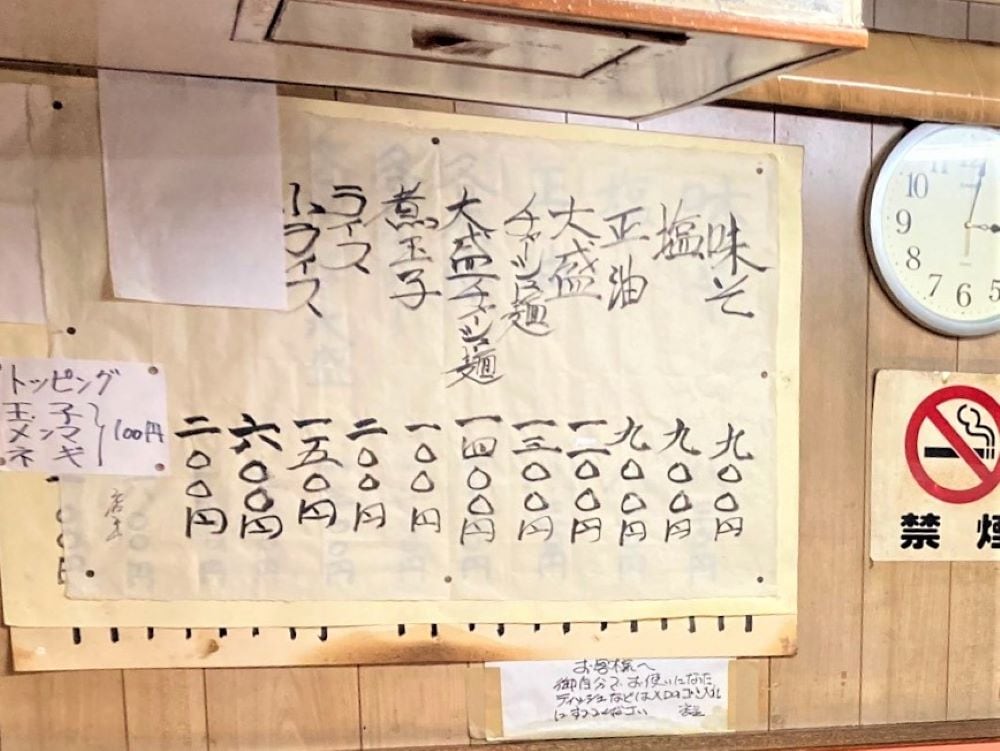 味そ 九〇〇円
塩 九〇〇円
正油 九〇〇円
大盛 一二〇〇円
チャーシュー麺 一三〇〇円
大盛チャーシュー麺 一四〇〇円
煮玉子 一〇〇円
ライス 二〇〇円
小ライス 一五〇円
六〇〇円
二〇〇円
店主
トッピング
玉子
メンマ
ネギ
100円
お客様へ
御自分でお使いになった
ティッシュなどは入口のゴミ入れ
にすててください 店主
禁煙
11
12
10
9
8
7
6
5